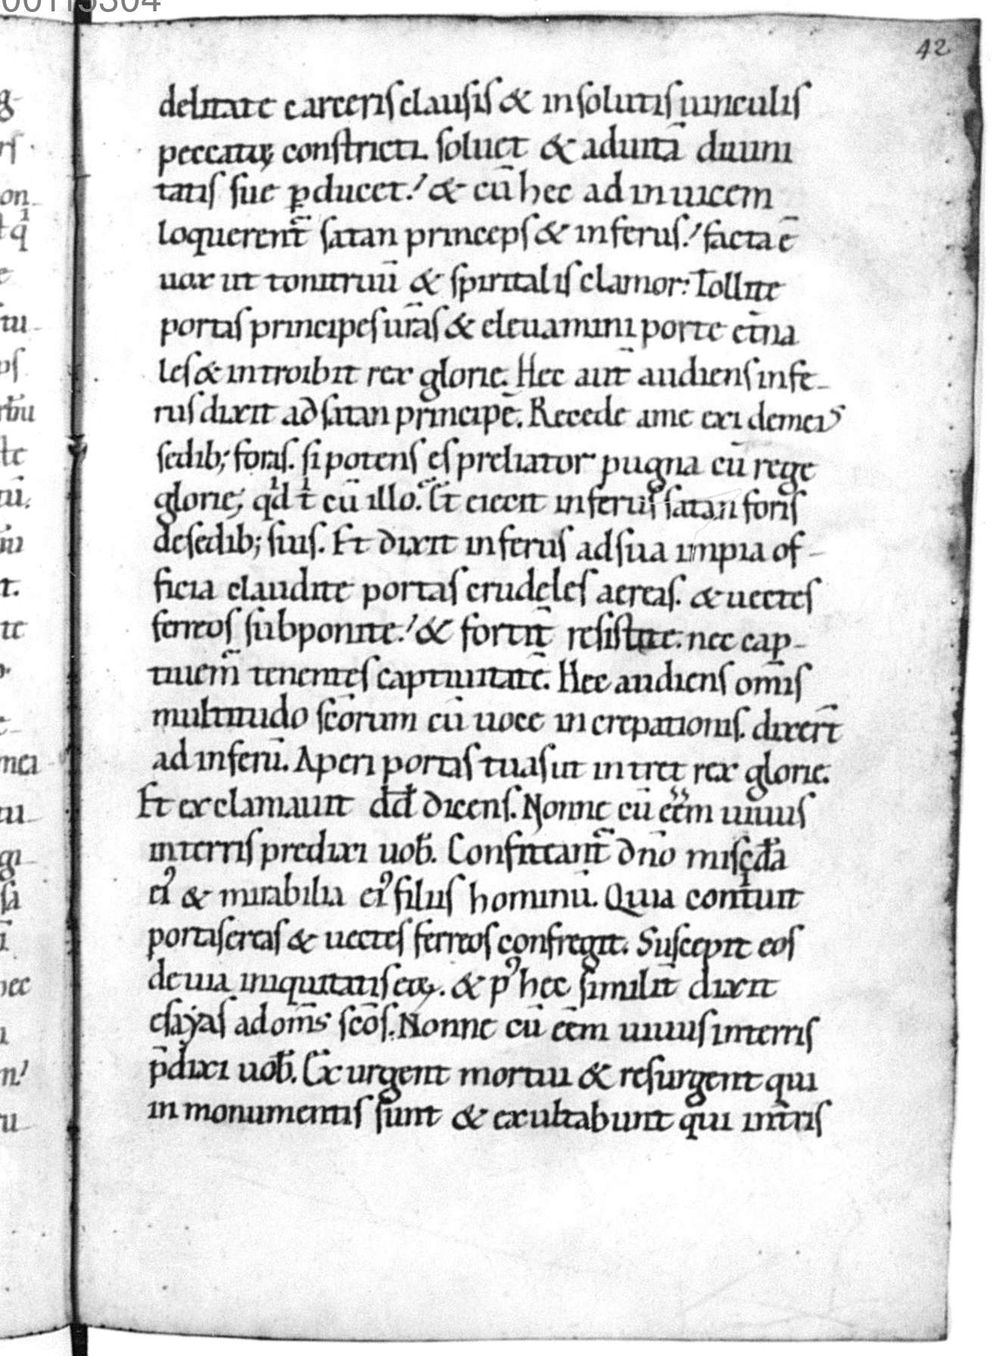 00115304
42
delitate carceris clausis & insolutis uinculis
peccatoꝝ constricti. soluet & aduitā diuini
tatis sue ꝑducet! & cū hec ad inuicem
loquerent̄ satan princeps & inferus! facta ē
uox ut tonitruū & spiritalis clamor: Tollite
portas principes ur̄as & eleuamini porte et̄na
les & introibit rex glorie. Hec aut̄ audiens infe-
rus dixit ad satan principē. Recede a me exi de meis
sedib; foras. si potens es preliator pugna cū rege
glorie; qd t̄ cū illo. Et eiecit inferus satan foris
de sedib; suis. Et dixit inferus ad sua impia of-
ficia claudite portas crudeles aereas. & uectes
ferreos subponite! & fortit̄ resistite. nec cap-
tiuem̄ tenentes captiuitatē. Hec audiens om̄is
multitudo sc̄orum cū uoce increpationis. dixer̄t
ad inferū. Aperi portas tuas ut intret rex glorie.
Et exclamauit dd̄ dicens. Nonne cū eēm uiuus
in terris predixi uob̄. Confiteant̄ dn̄o misc̄dia
ei᾿ & mirabilia ei᾿ filiis hominū. Quia cont̄uit
portas ereas & uectes ferreos confregit. Suscepit eos
de uia iniquitatis eoꝝ. & p᾿ hec similit̄ dixit
esayas ad om̄s sc̄os. Nonne cū eēm uiuus in terris
p̄dixi uob̄. Exurgent mortui & resurgent qui
in monumentis sunt & exultabunt qui int̄ris